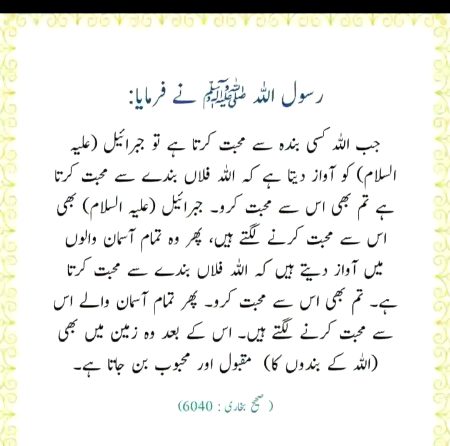 رسول اللہ ﷺ نے فرمایا:
جب اللہ کسی بندہ سے محبت کرتا ہے تو جبرائیل (علیہ
السلام) کو آواز دیتا ہے کہ اللہ فلاں بندے سے محبت کرتا
ہے تم بھی اس سے محبت کرو۔ جبرائیل (علیہ السلام) بھی
اس سے محبت کرنے لگتے ہیں، پھر وہ تمام آسمان والوں
میں آواز دیتے ہیں کہ اللہ فلاں بندے سے محبت کرتا
ہے۔ تم بھی اس سے محبت کرو۔ پھر تمام آسمان والے اس
سے محبت کرنے لگتے ہیں۔ اس کے بعد وہ زمین میں بھی
(اللہ کے بندوں کا) مقبول اور محبوب بن جاتا ہے۔
( صحیح بخاری : 6040)